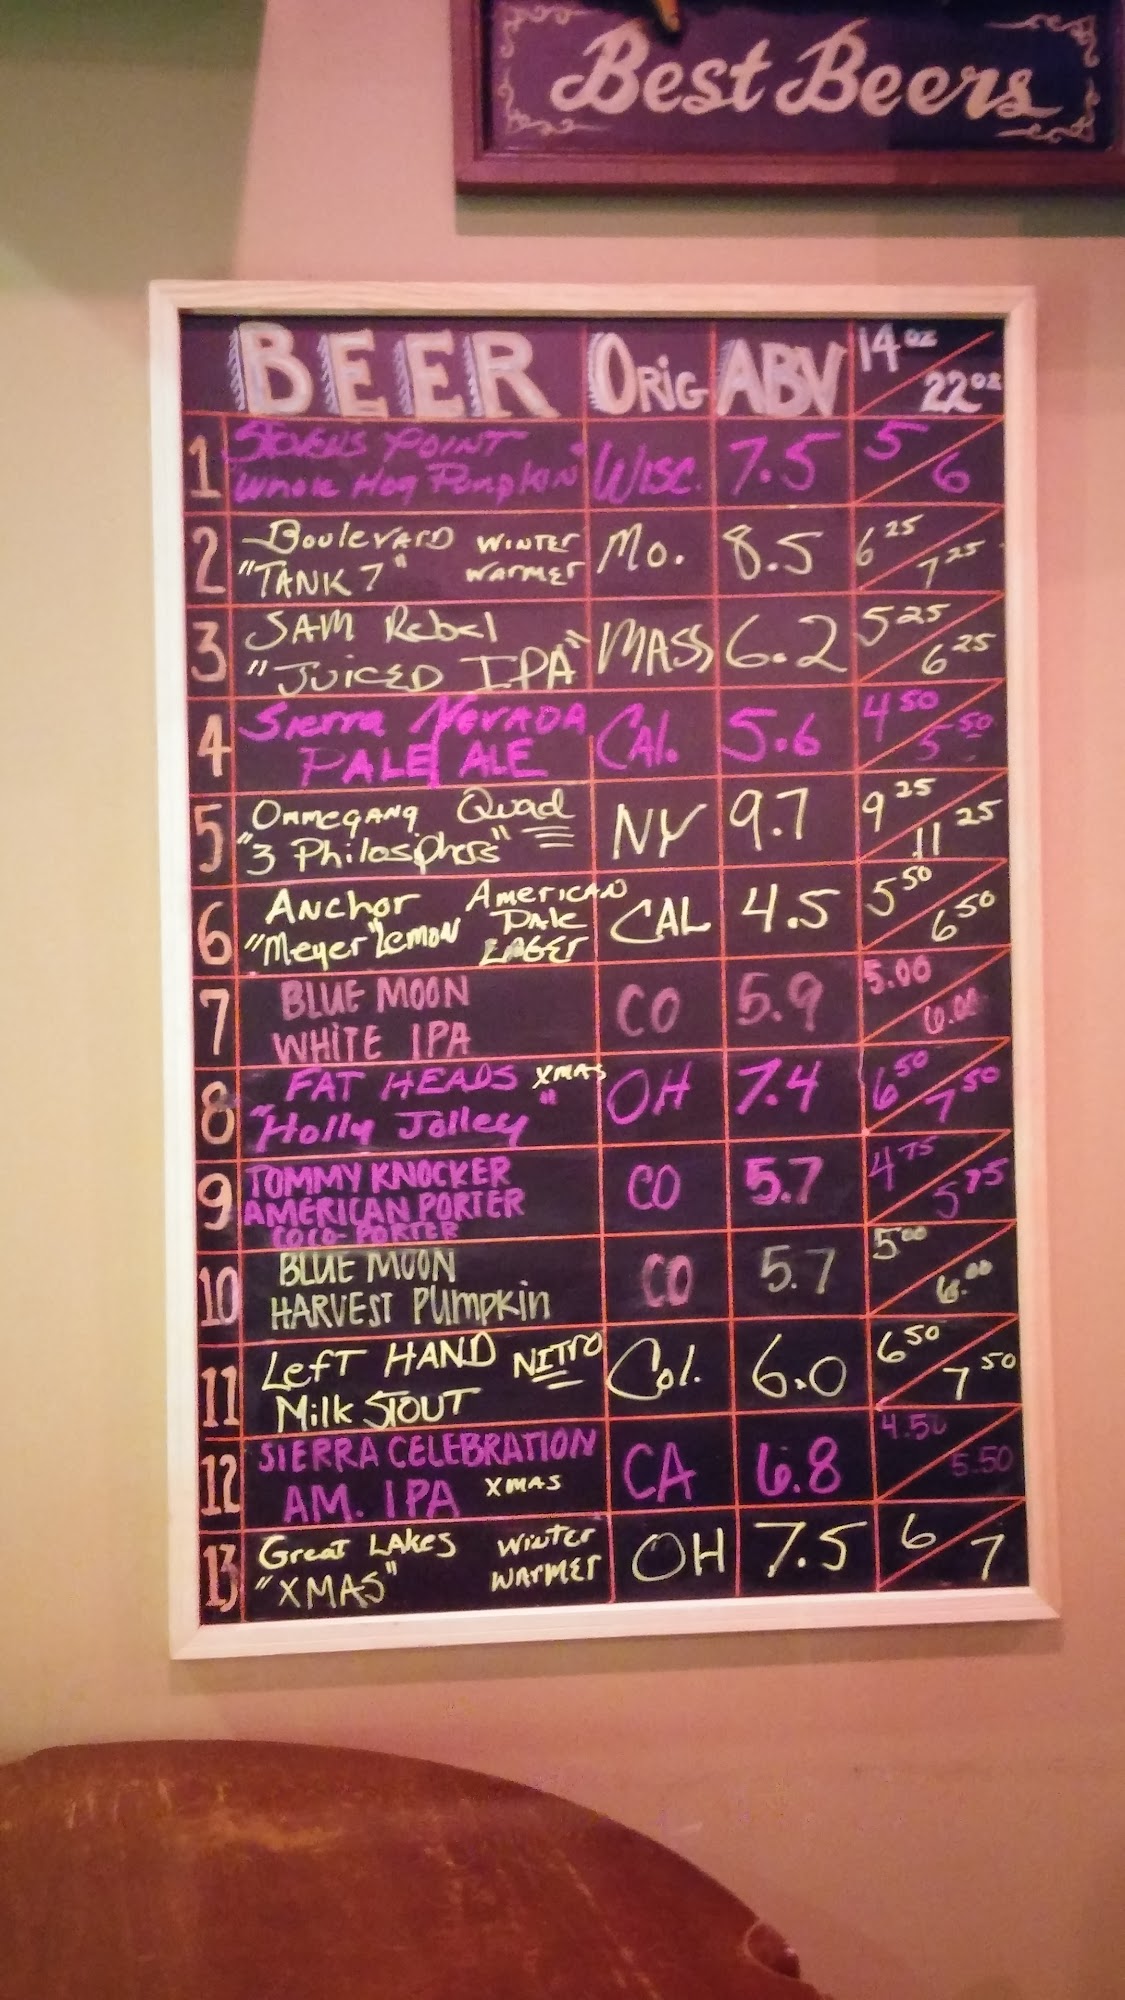 Best Beers
BEER Orig ABV 14oz 22oz
1 Stevens Point Wisc. 7.5 5 6
Whole Hog Pumpkin"
2 Boulevard WINTER Mo. 8.5 6 25 7 25
"TANK 7" WARMER
3 SAM Rebel MASS 6.2 5 25 6 25
"JUICED IPA"
4 Sierra NEVADA CAL. 5.6 4 50 5 50
PALE ALE
5 OMMEGANG Quad NY 9.7 9 25 11 25
"3 Philosiphers"
6 ANchor AMERICAN CAL 4.5 5 50 6 50
"Meyer" Lemon Pale LAGER
7 BLUE MOON CO 5.9 5.00 6.00
WHITE IPA
8 FAT HEADS XMAS OH 7.4 6 50 7 50
"Holly Jolley"
9 TOMMY KNOCKER CO 5.7 4 75 5 75
AMERICAN PORTER
COCO-PORTER
10 BLUE MOON CO 5.7 5 00 6.00
HARVEST PUMPKIN
11 LefT HAND NITRO Col. 6.0 6 50 7 50
Milk STOUT
12 SIERRA CELEBRATION CA 6.8 4.50 5.50
AM. IPA XMAS
13 Great LAKES WINTER OH 7.5 6 7
"XMAS" WARMER